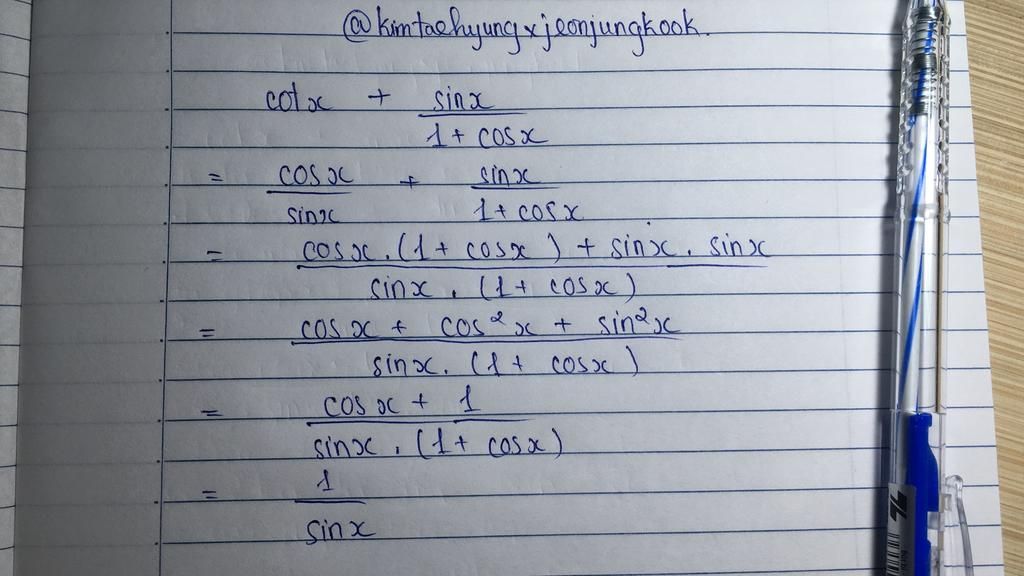 @kimtaehyungxjeonjungkook.
cotx + sinx
1 + cosx
= cosx + sinx
sinx 1 + cosx
= cosx . (1 + cosx) + sinx . sinx
sinx . (1 + cosx)
= cosx + cos²x + sin²x
sinx . (1 + cosx)
= cosx + 1
sinx . (1 + cosx)
= 1
sinx